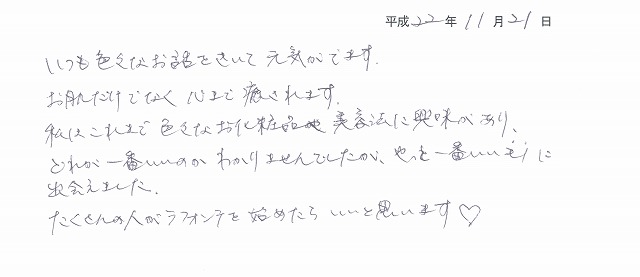 平成22年11月21日
いつも色々なお話をきいて元気がでます.
お肌だけでなく心まで癒されます.
私はこれまで色々なお化粧品や美容法に興味があり、
どれが一番いいのかわかりませんでしたが、やっと一番いいモノに
出会えました.
たくさんの人がラフォンテを始めたらいいと思います♡